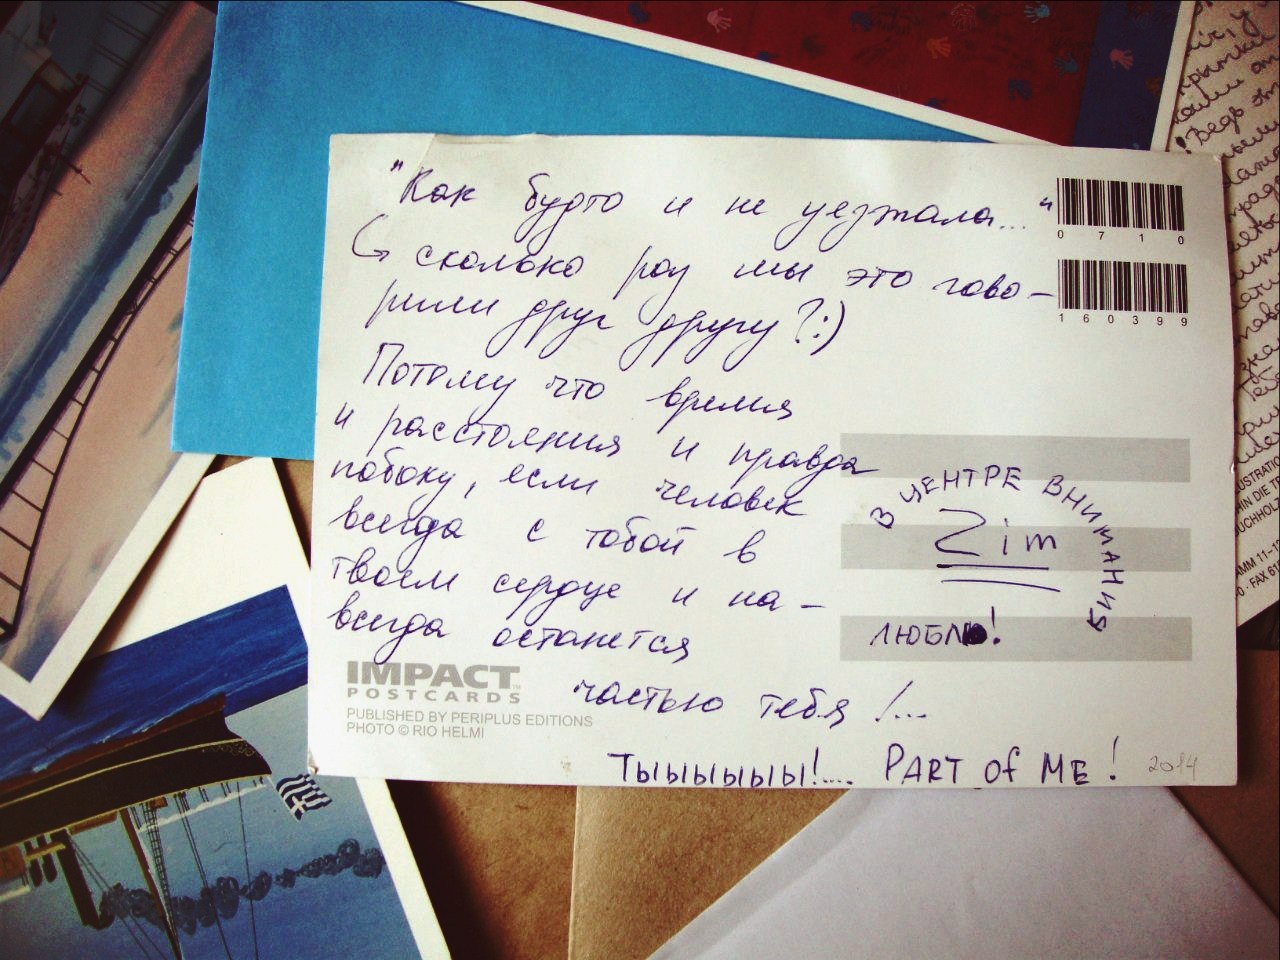 "Как будто и не уезжала..."
сколько раз мы это гово-
рили друг другу?:)
Потому что время
и расстояния и правда
побоку, если человек
всегда с тобой в
твоем сердце и на-
всегда останется
частью тебя!...
Тыыыыыы!.... PART OF ME!
2014
0710
160399
В ЦЕНТРЕ ВНИМАНИЯ
Zim
ЛЮБЛЮ!
IMPACT
POSTCARDS
PUBLISHED BY PERIPLUS EDITIONS
PHOTO © RIO HELMI